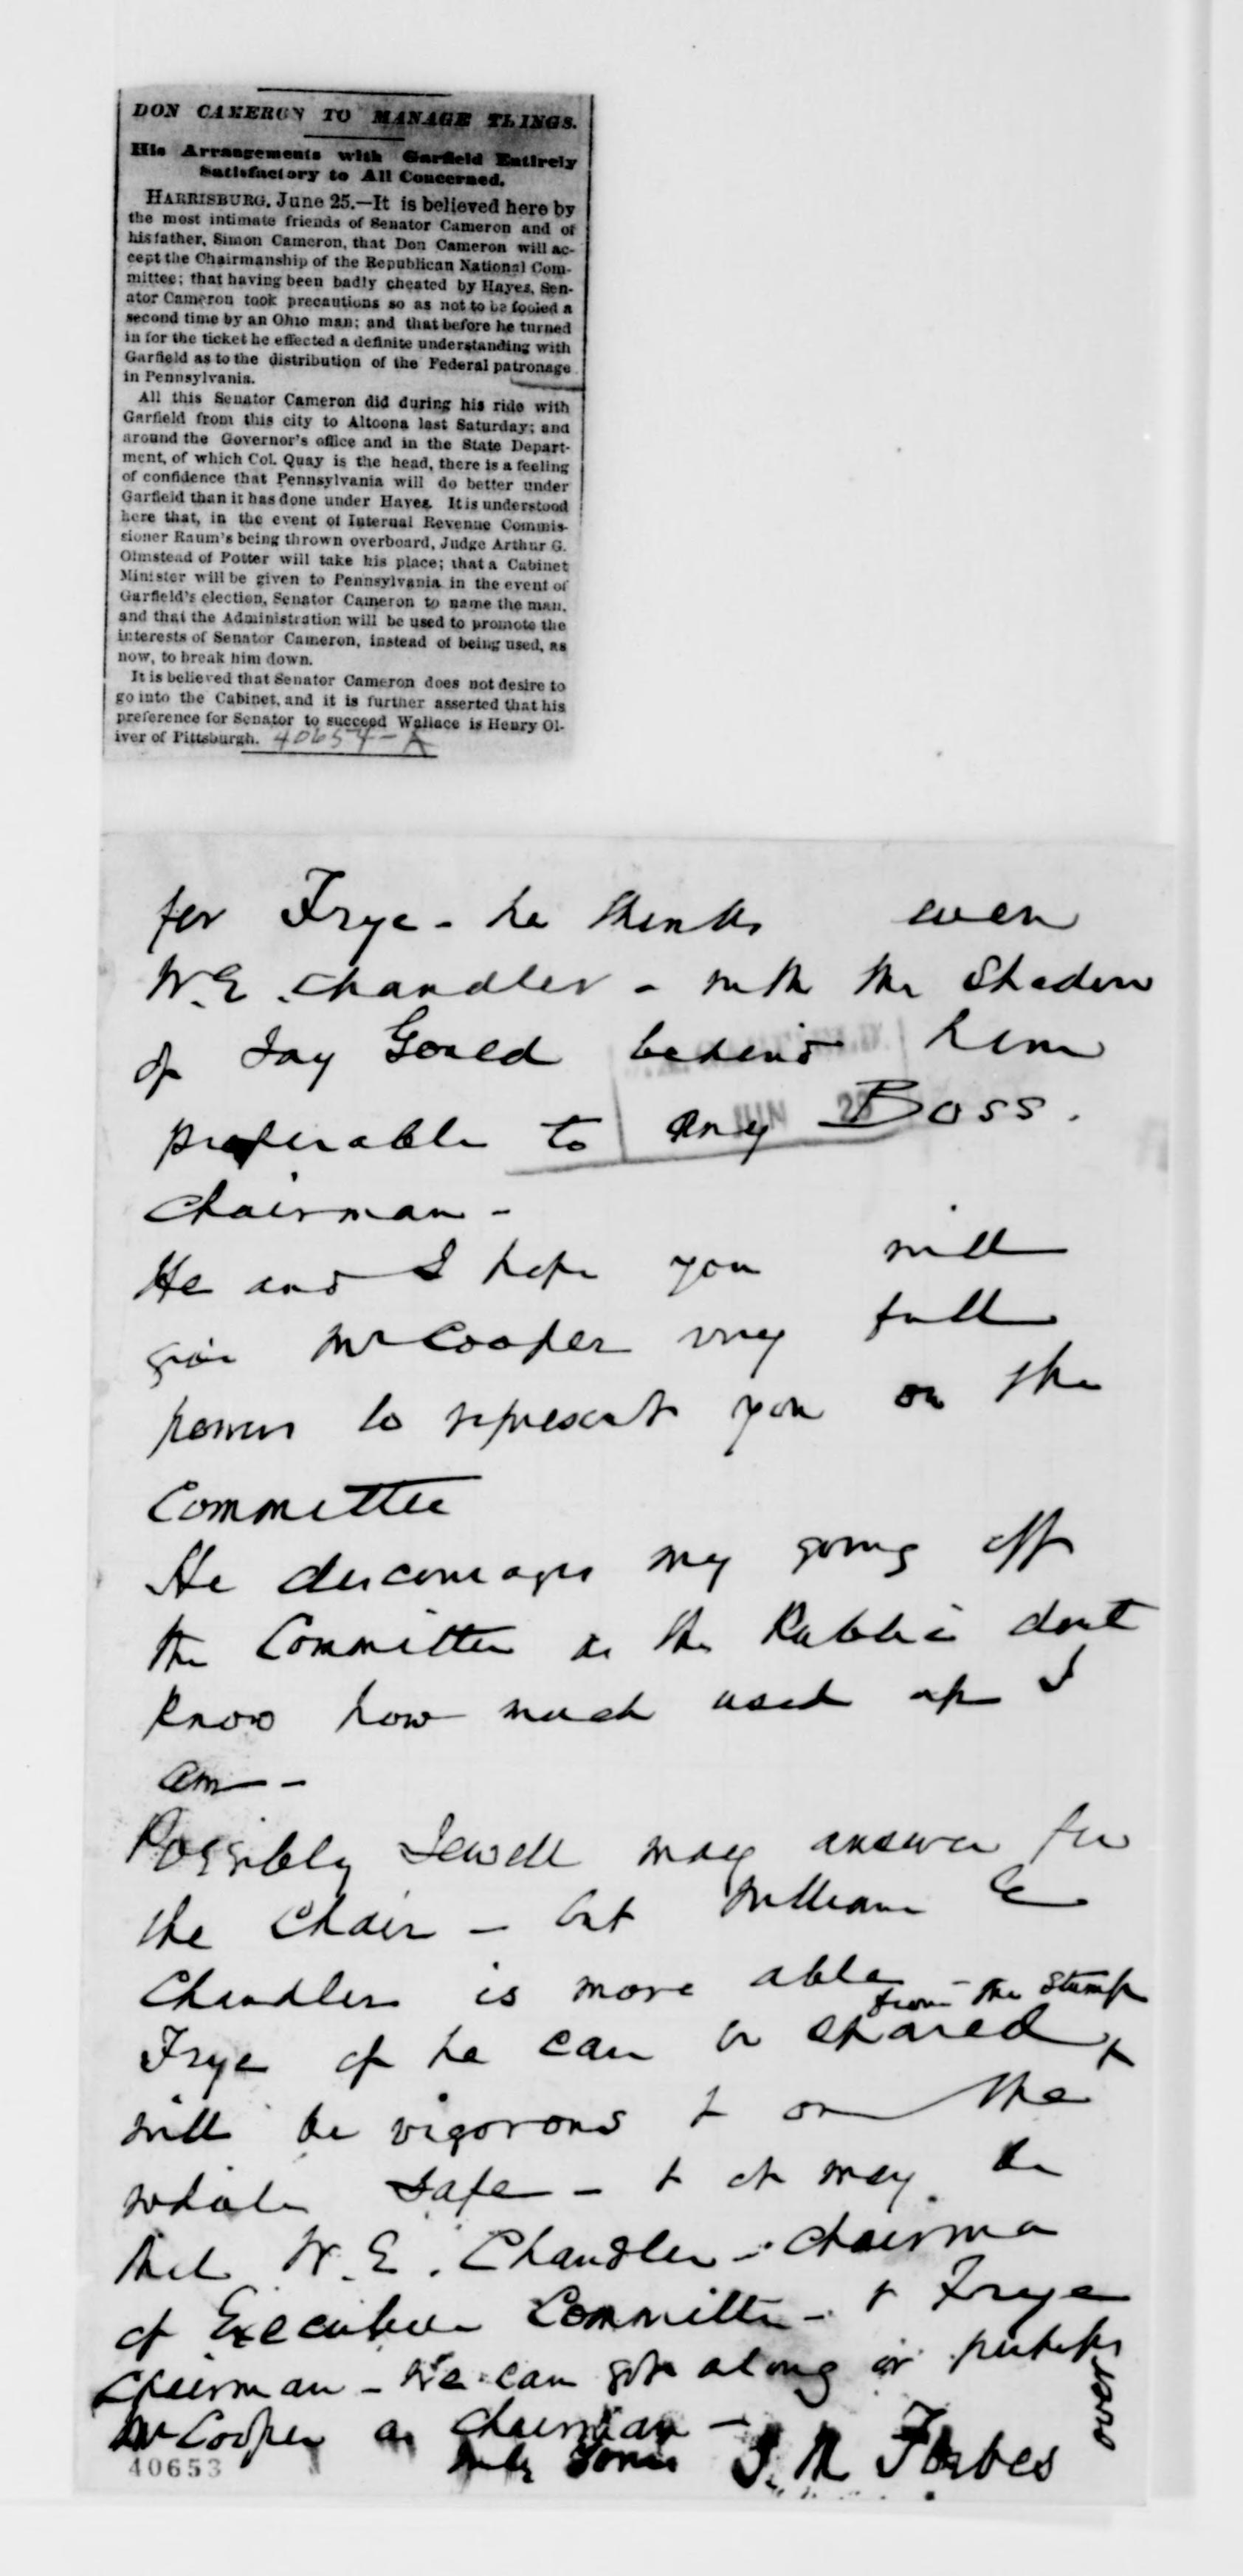 DON CAMERON TO MANAGE THINGS.
His Arrangements with Garfield Entirely
Satisfactory to All Concerned.
HARRISBURG, June 25.—It is believed here by
the most intimate friends of Senator Cameron and of
his father, Simon Cameron, that Don Cameron will ac-
cept the Chairmanship of the Republican National Com-
mittee; that having been badly cheated by Hayes, Sen-
ator Cameron took precautions so as not to be fooled a
second time by an Ohio man; and that before he turned
in for the ticket he effected a definite understanding with
Garfield as to the distribution of the Federal patronage
in Pennsylvania.
All this Senator Cameron did during his ride with
Garfield from this city to Altoona last Saturday; and
around the Governor's office and in the State Depart-
ment, of which Col. Quay is the head, there is a feeling
of confidence that Pennsylvania will do better under
Garfield than it has done under Hayes. It is understood
here that, in the event of Internal Revenue Commis-
sioner Raum's being thrown overboard, Judge Arthur G.
Olmstead of Potter will take his place; that a Cabinet
Minister will be given to Pennsylvania in the event of
Garfield's election, Senator Cameron to name the man,
and that the Administration will be used to promote the
interests of Senator Cameron, instead of being used, as
now, to break him down.
It is believed that Senator Cameron does not desire to
go into the Cabinet, and it is further asserted that his
preference for Senator to succeed Wallace is Henry Ol-
iver of Pittsburgh. 40654-A
for Frye - he thinks even
W.E. Chandler - with the Shadow
of Jay Gould behind him
preferable to any Boss.
JUN 28
Chairman -
He and I hope you will
give Mr Cooper very full
powers to represent you on the
Committee
He discourages my going off
the Committee as the Public dont
know how much used up I
am -
Possibly Jewell may answer for
the Chair - but William E
Chandler is more able -
from the Stump
Frye if he can be spared
will be vigorous & on the
whole Safe - & it may be
that W. E. Chandler - Chairman
of Executive Committee - & Frye
Chairman - We can get along or perhaps
Mr Cooper as Chairman -
over
Truly Yours J. M Forbes
40653